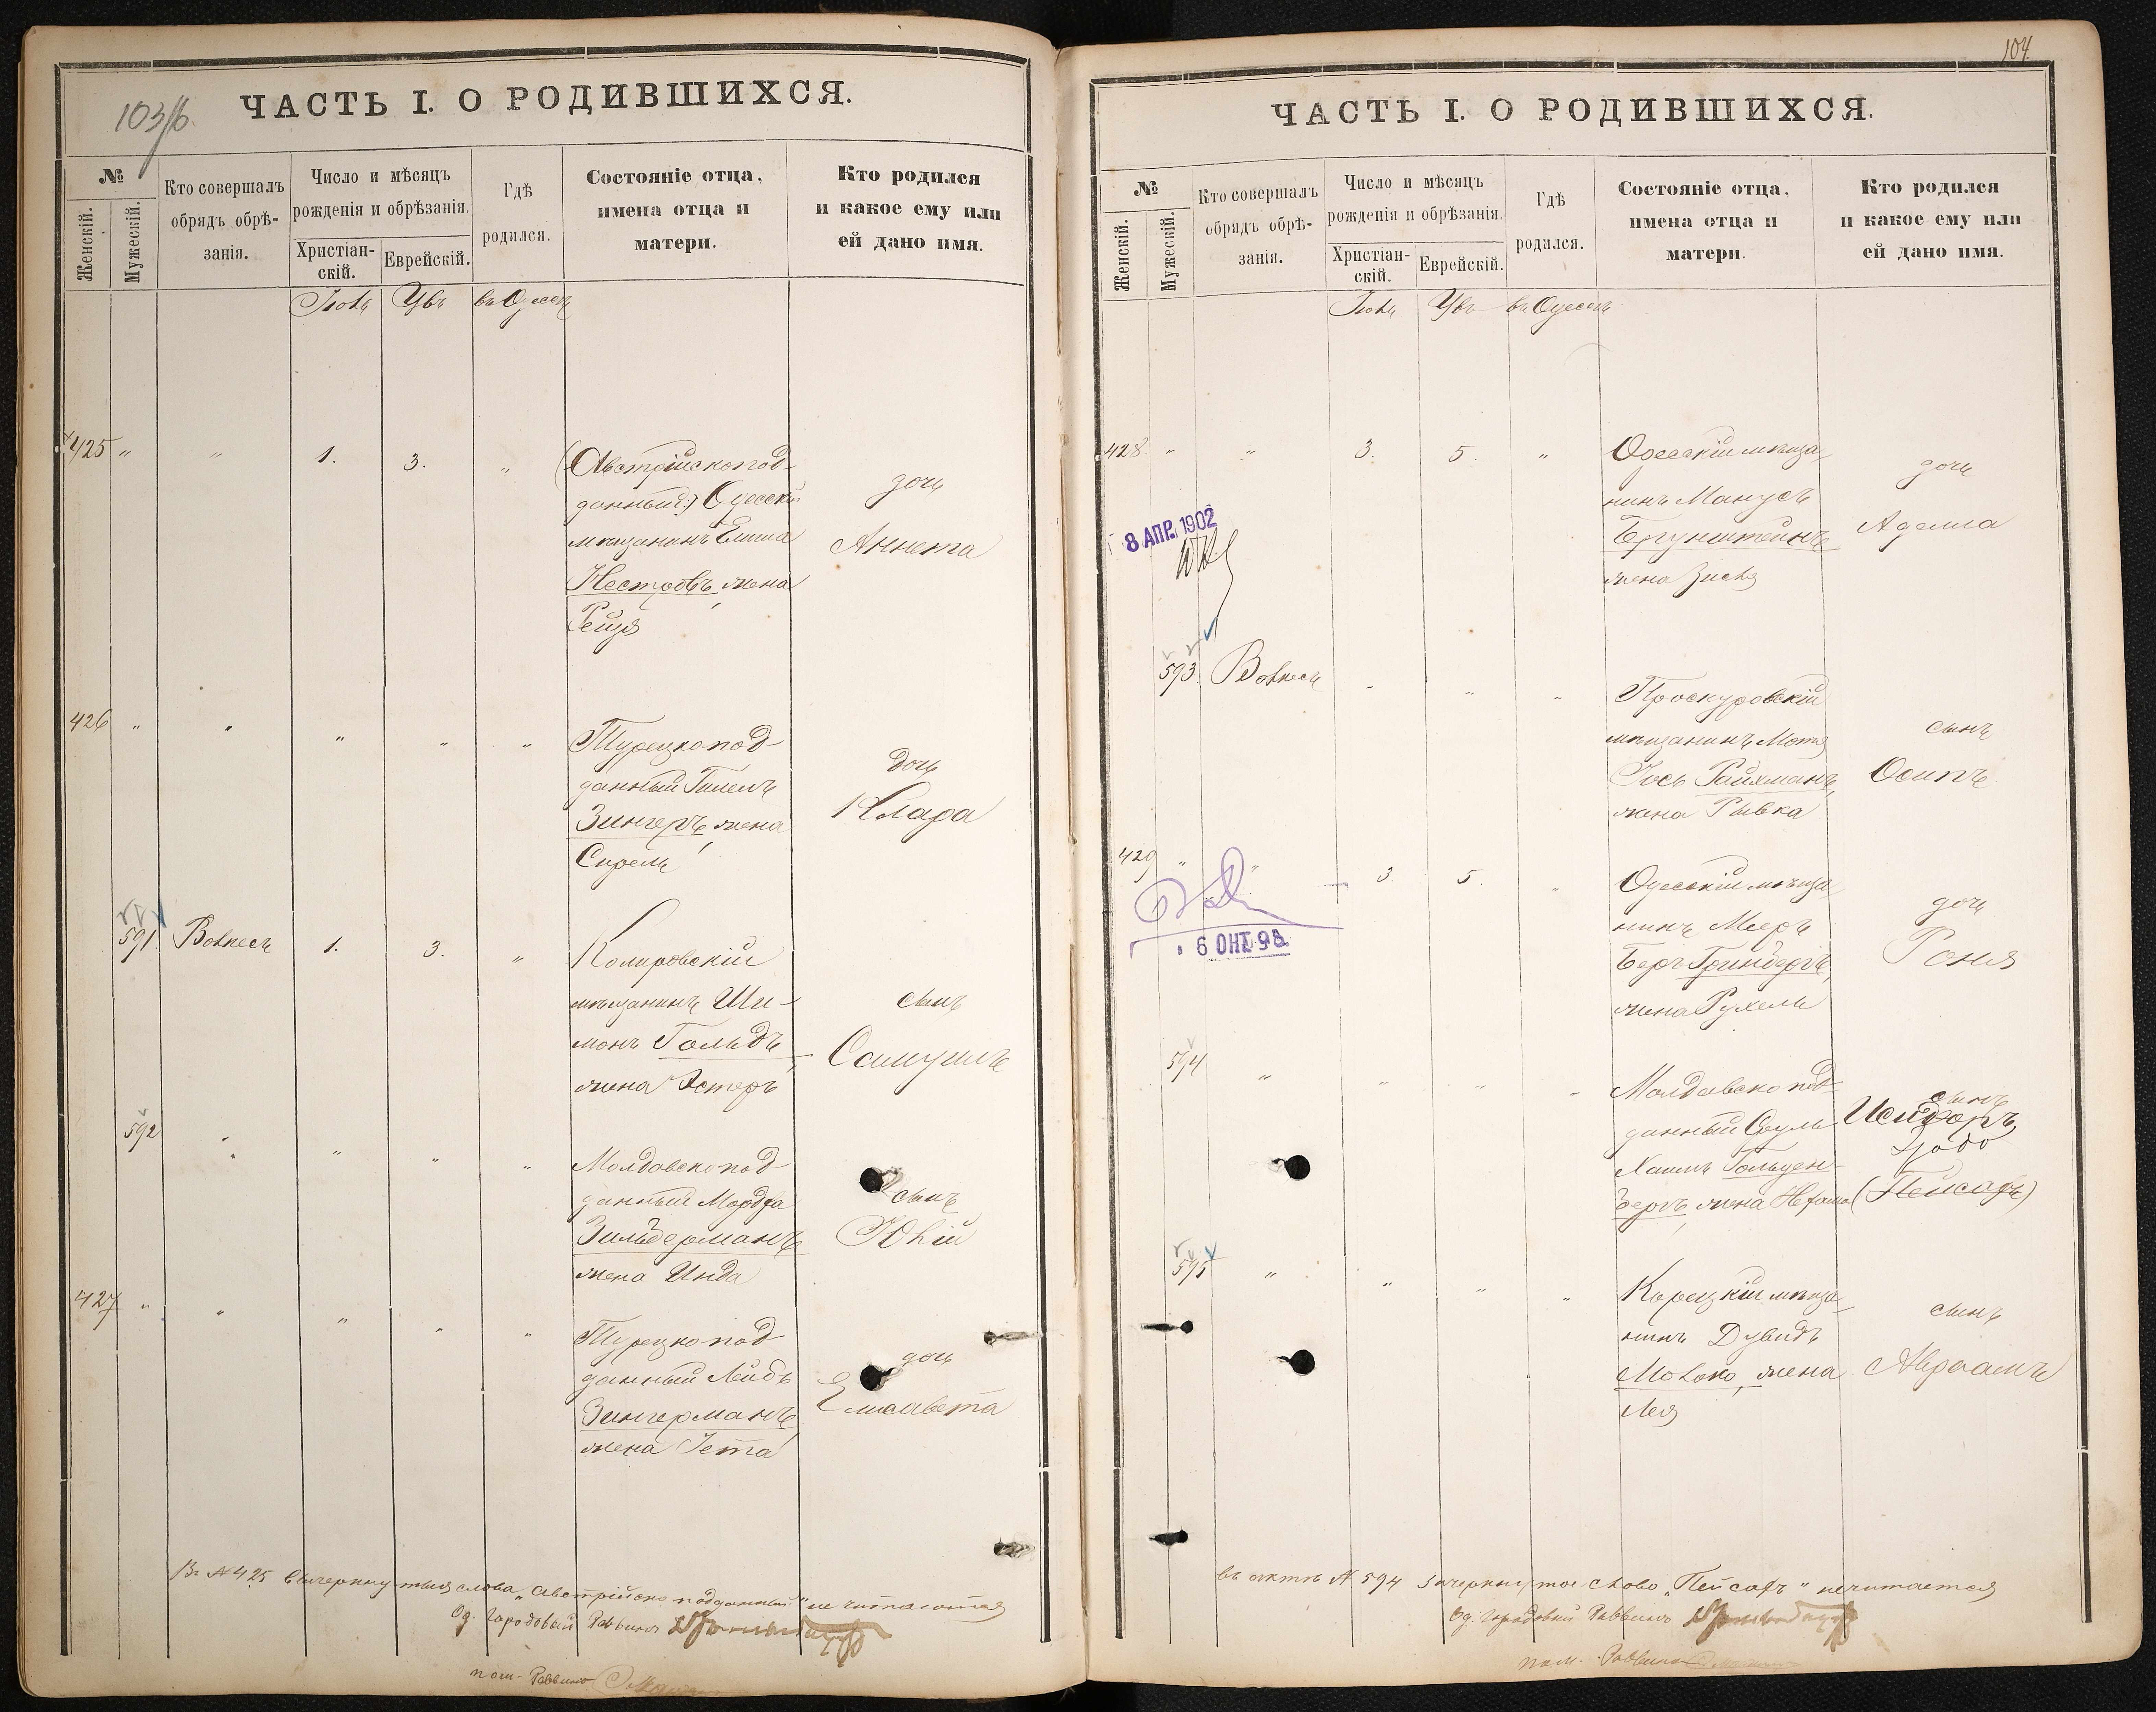 103/б.
ЧАСТЬ I. О РОДИВШИХСЯ.
№
Женскій.
Мужескій.
Кто совершалъ
обрядъ обрѣ-
занія.
Число и мѣсяцъ
рожденія и обрѣзанія.
Христіан-
скій.
Еврейскій.
Гдѣ
родился.
Состояніе отца,
имена отца и
матери.
Кто родился
и какое ему или
ей дано имя.
въ Одессѣ
425 " " 1. 3. "
(Австрійскопод-
данный:) Одесскій
мѣщанинъ
Нестровъ, жена
Рейзя
дочь
Аннета
426 " " " " "
Турецкопод-
данный Гилелъ
Зингеръ, жена
дочь
Клара
591 1. 3. "
мѣщанинъ Ши-
монъ Гольдъ,
жена Эстеръ
сынъ
Самуилъ
592 " " " "
Молдавскопод-
данный Мордха
Зильберманъ,
жена Инда
сынъ
Юлій
427 " " " " "
Турецкопод-
данный Лейбъ
Зингерманъ,
жена Іета
дочь
Елисавета
Въ № 425 вычеркнутыя слова „Австрійско подданный" не читаются
Од. Городовой Раввинъ
пом. Раввина
104.
ЧАСТЬ I. О РОДИВШИХСЯ.
№
Женскій.
Мужескій.
Кто совершалъ
обрядъ обрѣ-
занія.
Число и мѣсяцъ
рожденія и обрѣзанія.
Христіан-
скій.
Еврейскій.
Гдѣ
родился.
Состояніе отца,
имена отца и
матери.
Кто родился
и какое ему или
ей дано имя.
въ Одессѣ
428 " " 3. 5. "
Одесскій мѣща-
нинъ Манусъ
Бернштейнъ,
жена Зисля
дочь
Аделя
8 АПР. 1902
593
Проскуровскій
мѣщанинъ Мотя
Іось Райхманъ,
жена Рывка
сынъ
Осипъ
429 " " 3 5. "
Одесскій мѣща-
нинъ Мееръ
Беръ Гринбергъ,
жена Рухель
дочь
Роня
6 ОКТ. 98
594 " " " "
Молдавскопод-
данный Сруль
Хаимъ Гольден-
бергъ, жена Нехама
сынъ
Исидоръ
(Пейсахъ)
595 " " " "
Корецкій мѣща-
нинъ Дувидъ
Молоко, жена
Лея
сынъ
Авраамъ
въ актѣ № 594 зачеркнутое слово „Пейсахъ" нечитается
Од. Городовой Раввинъ
пом. Раввина